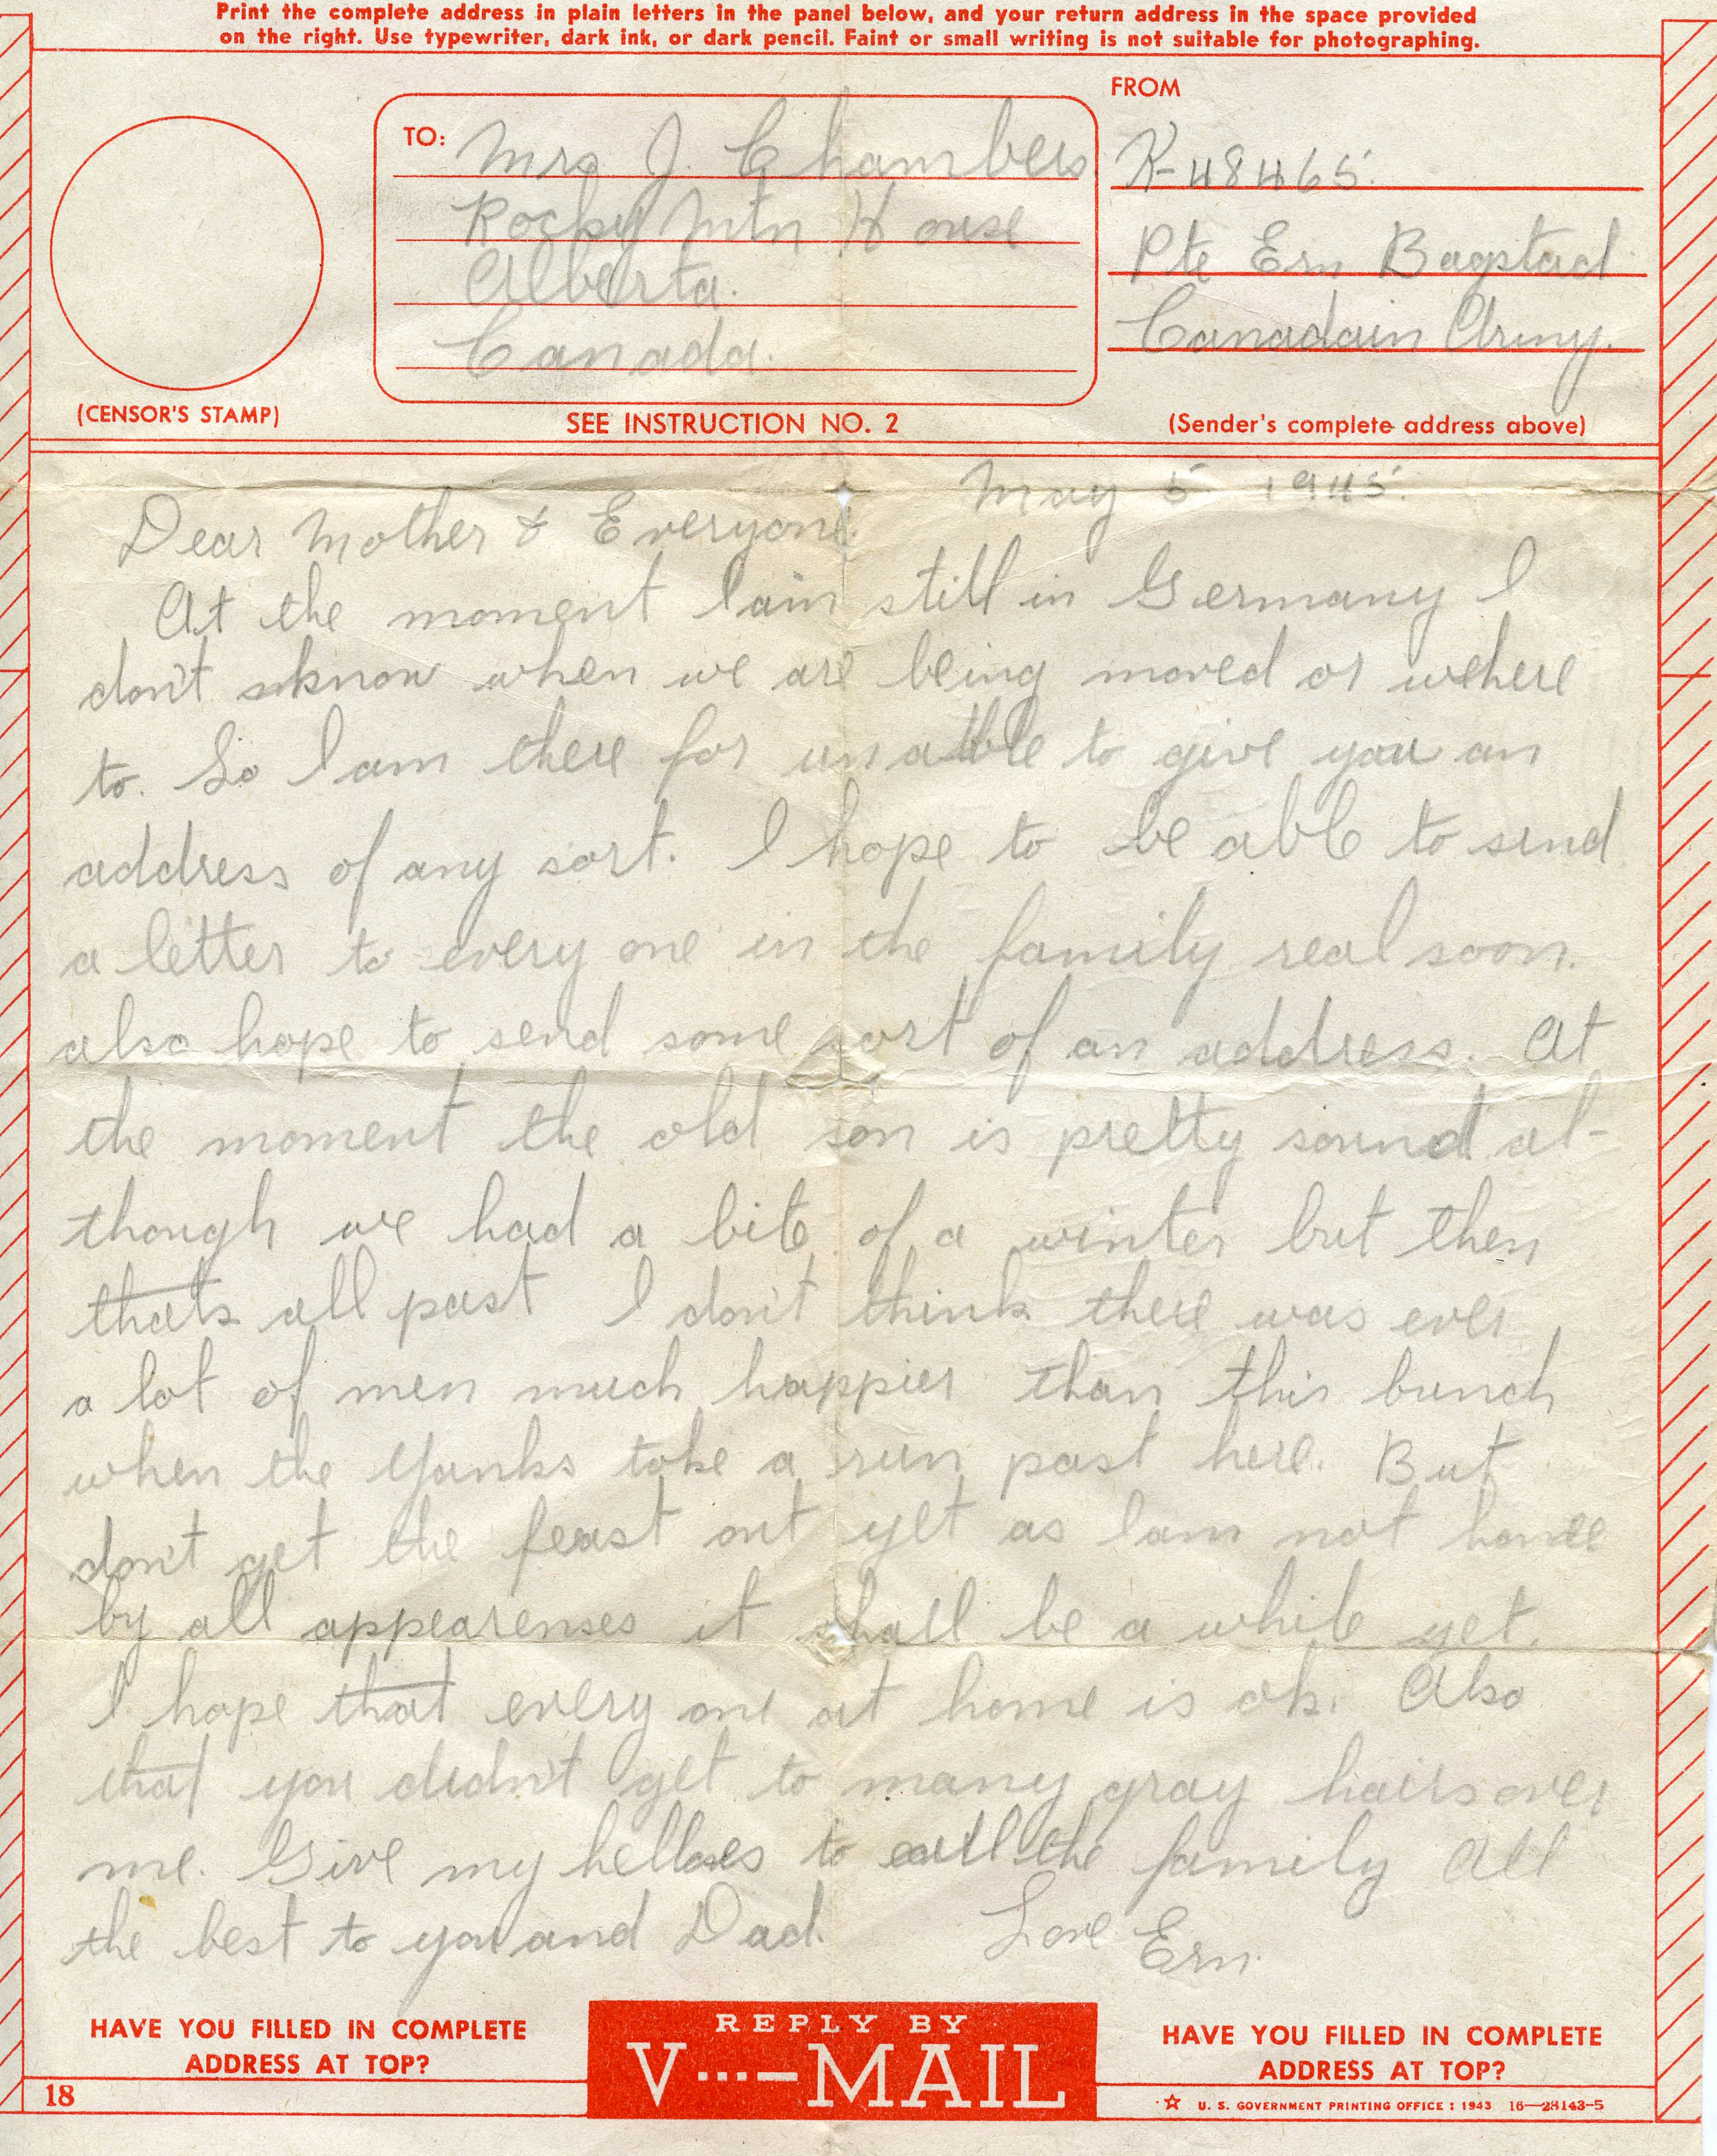 Print the complete address in plain letters in the panel below, and your return address in the space provided
on the right. Use typewriter, dark ink, or dark pencil. Faint or small writing is not suitable for photographing.
FROM
TO: Mrs J. Chambers
Rocky Mtn House
Alberta.
Canada.
K-48465.
Pte Ern Bagstad
Canadain Army.
(CENSOR'S STAMP)
SEE INSTRUCTION NO. 2
(Sender's complete address above)
May 5 1945.
Dear Mother & Everyone.
At the moment I am still in Germany I
don't know when we are being moved or where
to. So I am there for unable to give you an
address of any sort. I hope to be able to send
a letter to every one in the family real soon.
also hope to send some sort of an address. At
the moment the old son is pretty sound al-
though we had a bite of a winter but then
thats all past I don't think there was ever
a lot of men much happier than this bunch
when the Yanks take a run past here. But
don't get the feast out yet as I am not home
by all appearenses it shall be a while yet.
I hope that every one at home is ok. Also
that you didn't get to many gray hairs over
me. Give my helloes to all the family All
the best to you and Dad.
Love Ern.
HAVE YOU FILLED IN COMPLETE
ADDRESS AT TOP?
REPLY BY
V···—MAIL
HAVE YOU FILLED IN COMPLETE
ADDRESS AT TOP?
18
☆ U. S. GOVERNMENT PRINTING OFFICE : 1943 16—28143-5